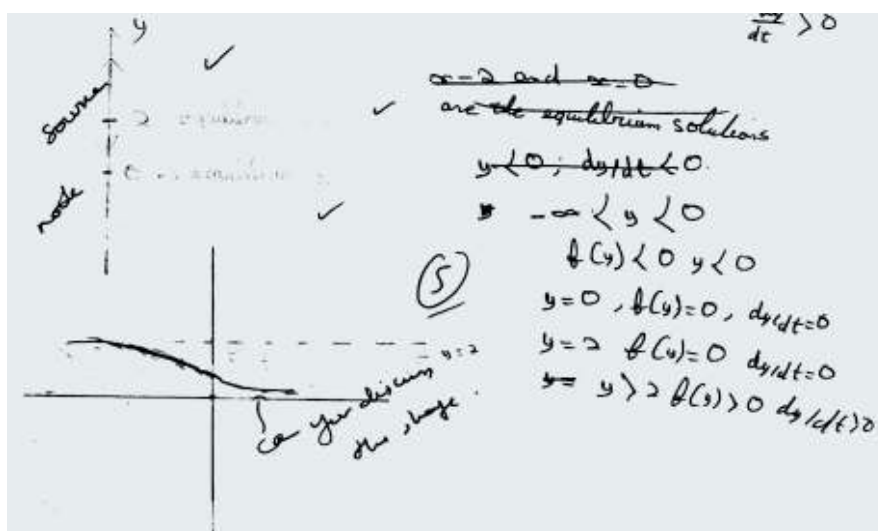 dy/dt > 0
y
source
2
0
node
~~x=2 and x=0~~
~~are the equilibrium solutions~~
~~y<0; dy/dt<0.~~
-∞ < y < 0
f(y) < 0 y < 0
y=0, f(y)=0, dy/dt=0
y=2 f(y)=0 dy/dt=0
y > 2 f(y)>0 dy/dt>0
5
y=2
can you discuss
the shape.